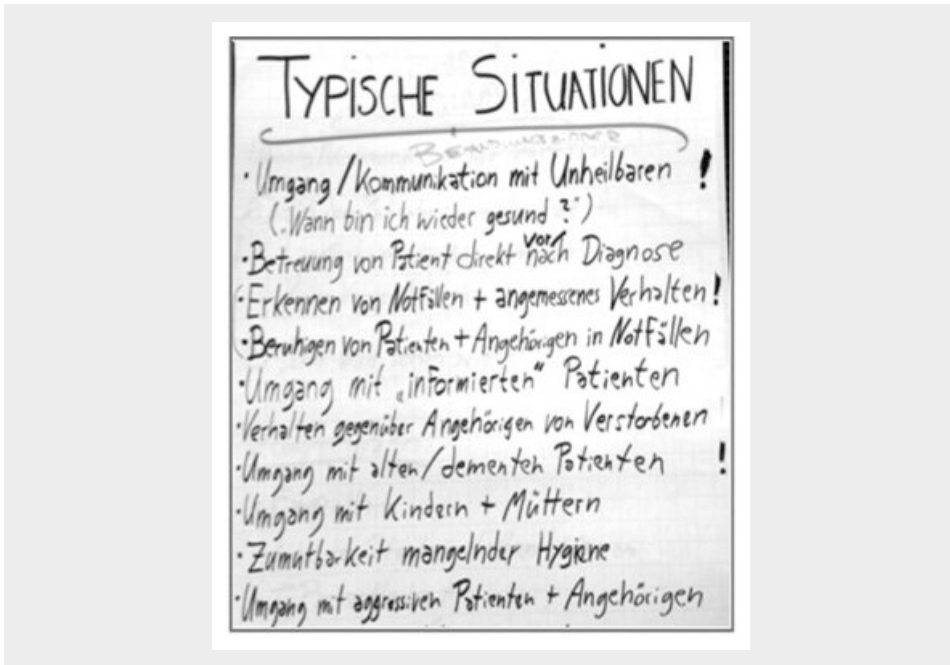 TYPISCHE SITUATIONEN
· Umgang / Kommunikation mit Unheilbaren !
(„Wann bin ich wieder gesund?")
· Betreuung von Patient direkt vor/nach Diagnose
· Erkennen von Notfällen + angemessenes Verhalten !
· Beruhigen von Patienten + Angehörigen in Notfällen
· Umgang mit „informierten“ Patienten
· Verhalten gegenüber Angehörigen von Verstorbenen
· Umgang mit alten/dementen Patienten !
· Umgang mit Kindern + Müttern
· Zumutbarkeit mangelnder Hygiene
· Umgang mit aggressiven Patienten + Angehörigen